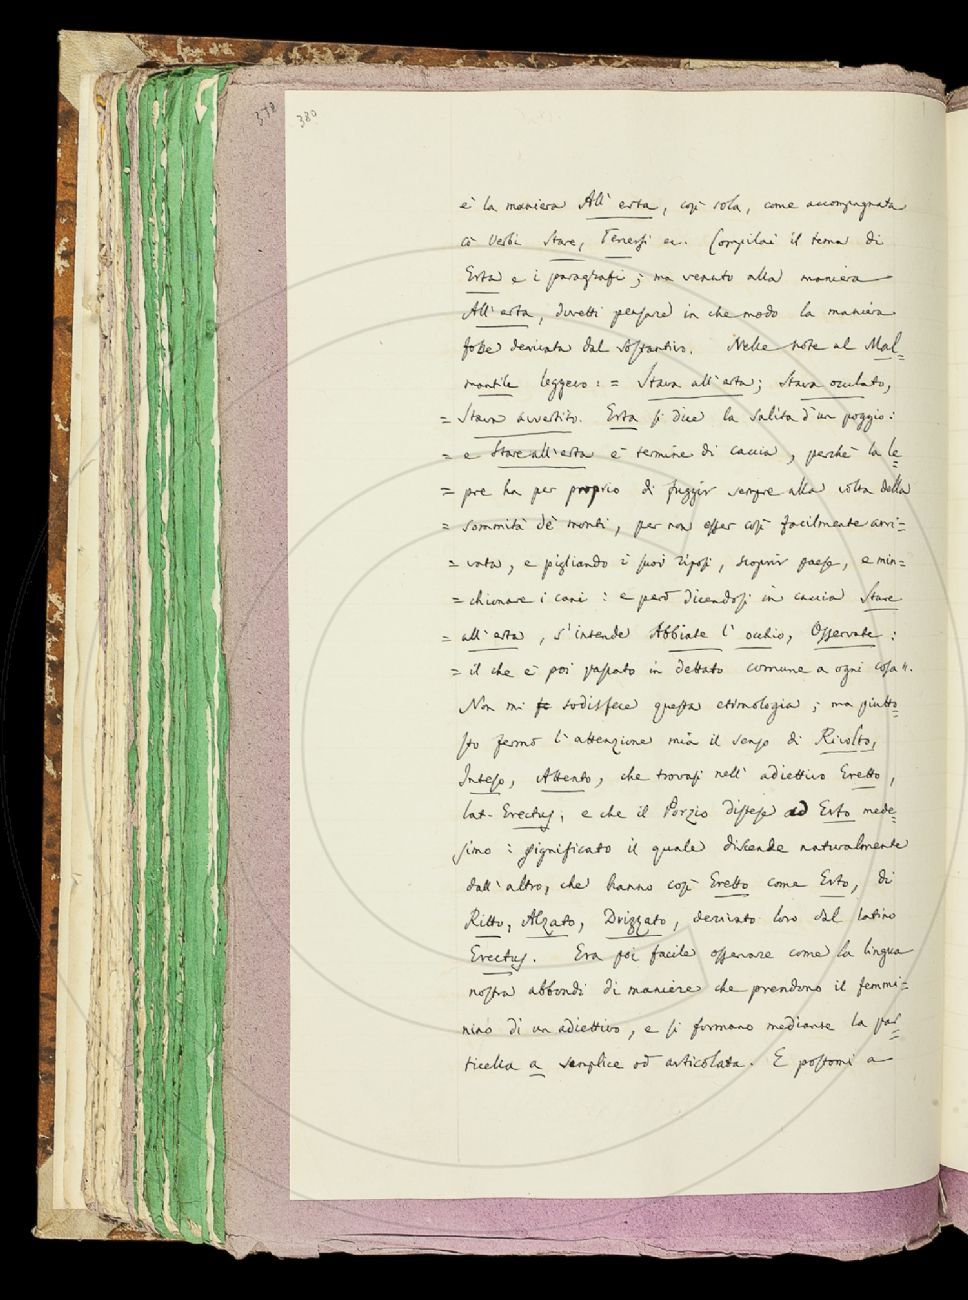 378 380
è la maniera All' erta, così sola, come accompagnata
cò verbi Stare, Tenersi ec. Compilai il tema di
Erta e i paragrafi; ma venuto alla maniera
All' erta, dovetti pensare in che modo la maniera
fosse derivata dal sostantivo. Nelle note al Mal=
mantile leggevo: = Stava all' erta; Stava oculato,
= Stava avvertito. Erta si dice la salita d'un poggio:
= e Stare all' erta è termine di caccia, perchè la le=
= pre ha per proprio di fuggir sempre alla volta della
= sommità de' monti, per non esser così facilmente arri=
= vata, e pigliando i suoi riposi, scoprir paese, e min=
= chionare i cani: e però dicendosi in caccia Stare
= all' erta, s'intende Abbiate l' occhio, Osservate:
= il che è poi passato in dettato comune a ogni cosa ".
Non mi sodisfece questa etimologia; ma piutto=
sto fermò l' attenzione mia il senso di Rivolto,
Inteso, Attento, che trovasi nell' adiettivo Eretto,
lat. Erectus; e che il Porzio distese ad Erto mede=
simo: significato il quale discende naturalmente
dall' altro, che hanno così Eretto come Erto, di
Ritto, Alzato, Drizzato, derivato loro dal latino
Erectus. Era poi facile osservare come la lingua
nostra abbondi di maniere che prendono il femmi=
nino di un adiettivo, e si formano mediante la par=
ticella a semplice od articolata. E postomi a